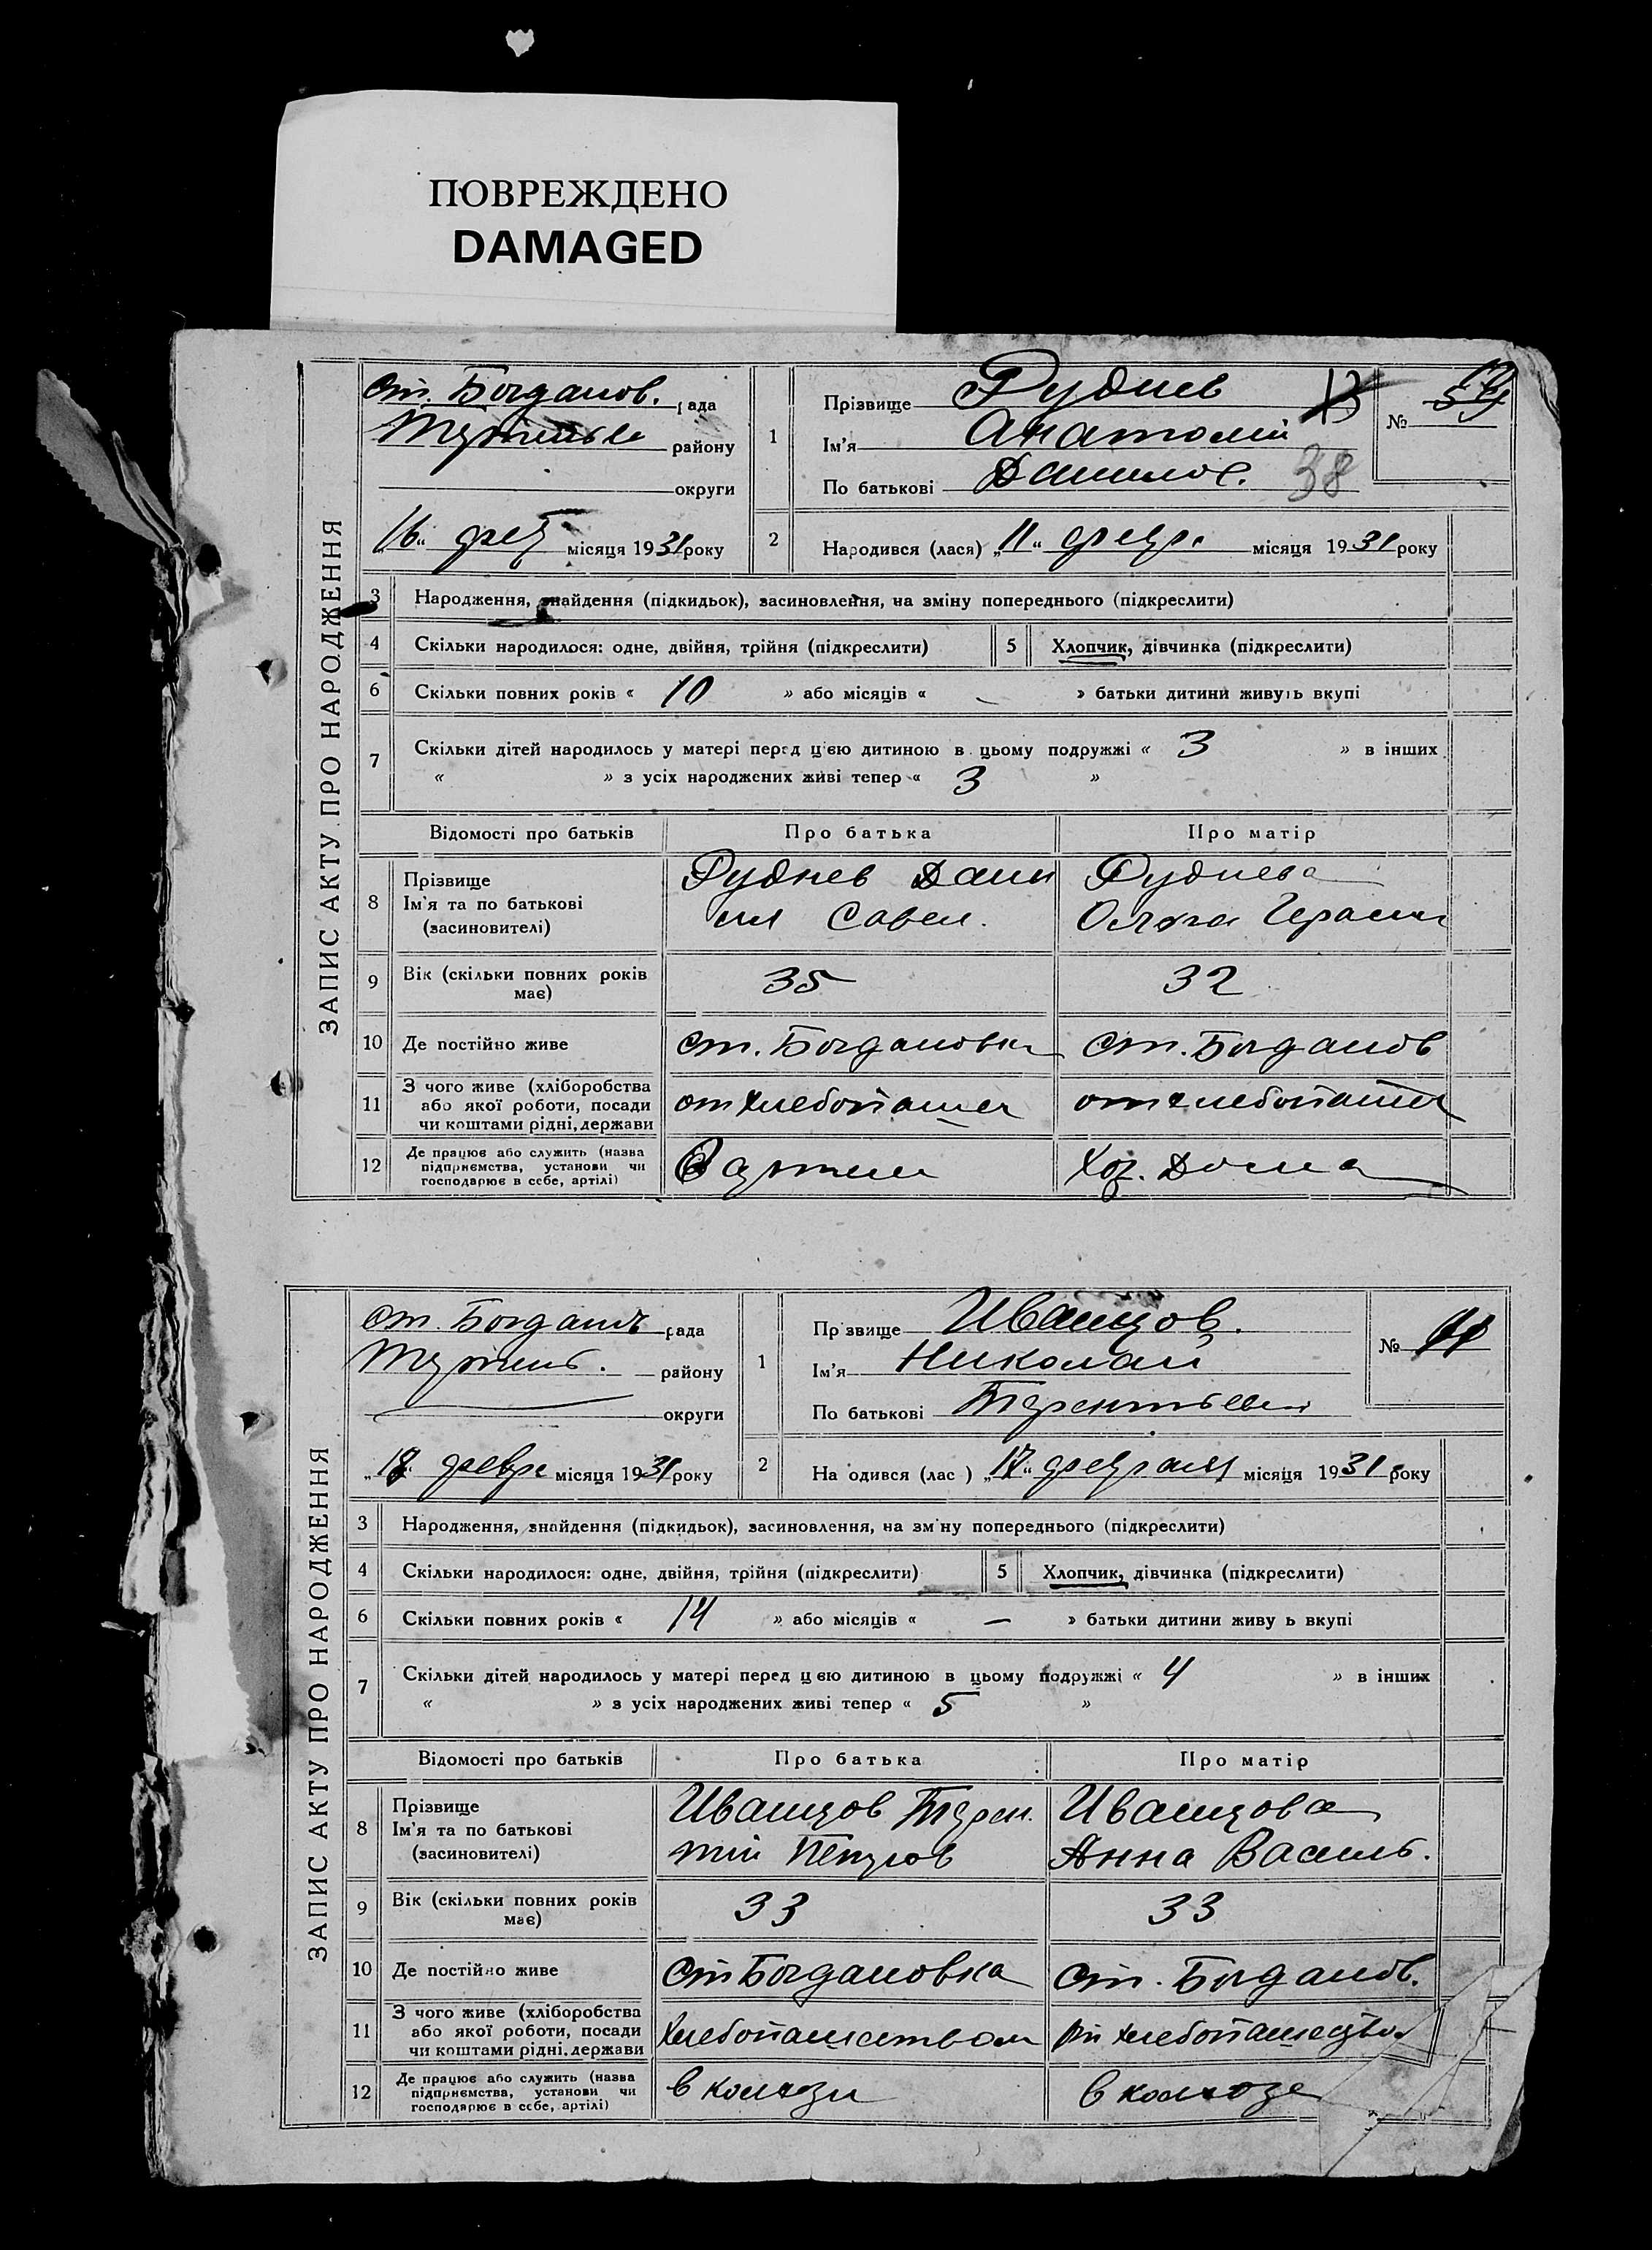 ПОВРЕЖДЕНО
DAMAGED
ЗАПИС АКТУ ПРО НАРОДЖЕННЯ
Ст. Богданов. рада
району
округи
16 " місяця 1931 року
1
Прізвище Руднев
Ім'я Анатолий
По батькові Данилов.
13
38
№
2
Народився (лася) „11“ февр. місяця 1931 року
3 Народження, знайдення (підкидьок), засиновлення, на зміну попереднього (підкреслити)
4 Скільки народилося: одне, двійня, трійня (підкреслити) 5 Хлопчик, дівчинка (підкреслити)
6 Скільки повних років « 10 » або місяців « - » батьки дитини живуть вкупі
7 Скільки дітей народилось у матері перед цією дитиною в цьому подружжі « 3 » в інших
« » з усіх народжених живі тепер « 3 »
Відомості про батьків Про батька Про матір
8 Прізвище
Ім'я та по батькові
(засиновителі)
Руднев Дани
ил Савел.
Руднева
Ольга Герасим
9 Вік (скільки повних років
має)
35 32
10 Де постійно живе Ст. Богдановка Ст. Богданов
11 З чого живе (хліборобства
або якої роботи, посади
чи коштами рідні, держави
от хлебопаше от хлебопаше
12 Де працює або служить (назва
підприємства, установи чи
господарює в себе, артілі)
В артели Хоз. Дома
ЗАПИС АКТУ ПРО НАРОДЖЕННЯ
Ст. Богдан рада
району
округи
„ “ февр місяця 1931 року
1
Пр звище Иванцов.
Ім'я Николай
По батькові Терентьевич
№
2
На одився (лас ) „ “ февраля місяця 1931 року
3 Народження, знайдення (підкидьок), засиновлення, на зм ну попереднього (підкреслити)
4 Скільки народилося: одне, двійня, трійня (підкреслити) 5 Хлопчик, дівчинка (підкреслити)
6 Скільки повних років « 14 » або місяців « — » батьки дитини живу ь вкупі
7 Скільки дітей народилось у матері перед цією дитиною в цьому подружжі « 4 » в інших
« » з усіх народжених живі тепер « 5 »
Відомості про батьків Про батька Про матір
8 Прізвище
Ім'я та по батькові
(засиновителі)
Иванцов Терен.
тий Петров
Иванцова
Анна Василь.
9 Вік (скільки повних років
має)
33 33
10 Де постійно живе Ст Богдановка Ст. Богданов.
11 З чого живе (хліборобства
або якої роботи, посади
чи коштами рідні, держави
Хлебопашеством от хлебопашество
12 Де працює або служить (назва
підприємства, установи чи
господарює в себе, артілі)
в колхози в колхозе